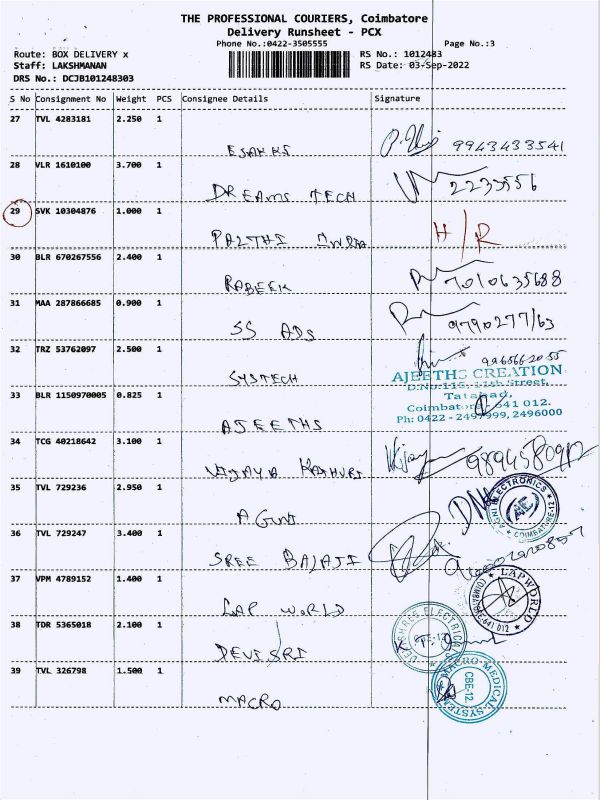 THE PROFESSIONAL COURIERS, Coimbatore
Delivery Runsheet - PCX
Phone No.:0422-3505555
Page No.:3
Route: BOX DELIVERY x
RS No.: 1012483
Staff: LAKSHMANAN
RS Date: 03-Sep-2022
DRS No.: DCJB101248303
S No Consignment No Weight PCS Consignee Details Signature
27 TVL 4283181 2.250 1
ESAKKI 9943433541
28 VLR 1610100 3.700 1
DREAMS TECH 2233556
29 SVK 10304876 1.000 1
H/R
30 BLR 670267556 2.400 1
RABEEK 7010635688
31 MAA 287866685 0.900 1
SS ADS 9790277163
32 TRZ 53762097 2.500 1
SYSTECH
AJEETHS CREATION
D.No:115, 11th Street,
Tatabad,
Coimbatore - 641 012.
Ph: 0422 - 2497999, 2496000
33 BLR 1150970005 0.825 1
AJEETHS
34 TCG 40218642 3.100 1
VIJAYA Vijay
35 TVL 729236 2.950 1
AGNI
AGNI ELECTRONICS COIMBATORE-12
AE
36 TVL 729247 3.400 1
SREE BALAJI
37 VPM 4789152 1.400 1
LAP WORLD
LAPWORLD
38 TDR 5365018 2.100 1
DEVI SRI
DEVISHREE ELECTRICALS
CBE-12
39 TVL 326798 1.500 1
MACRO
MACRO MEDICAL SYSTEMS
CBE-12